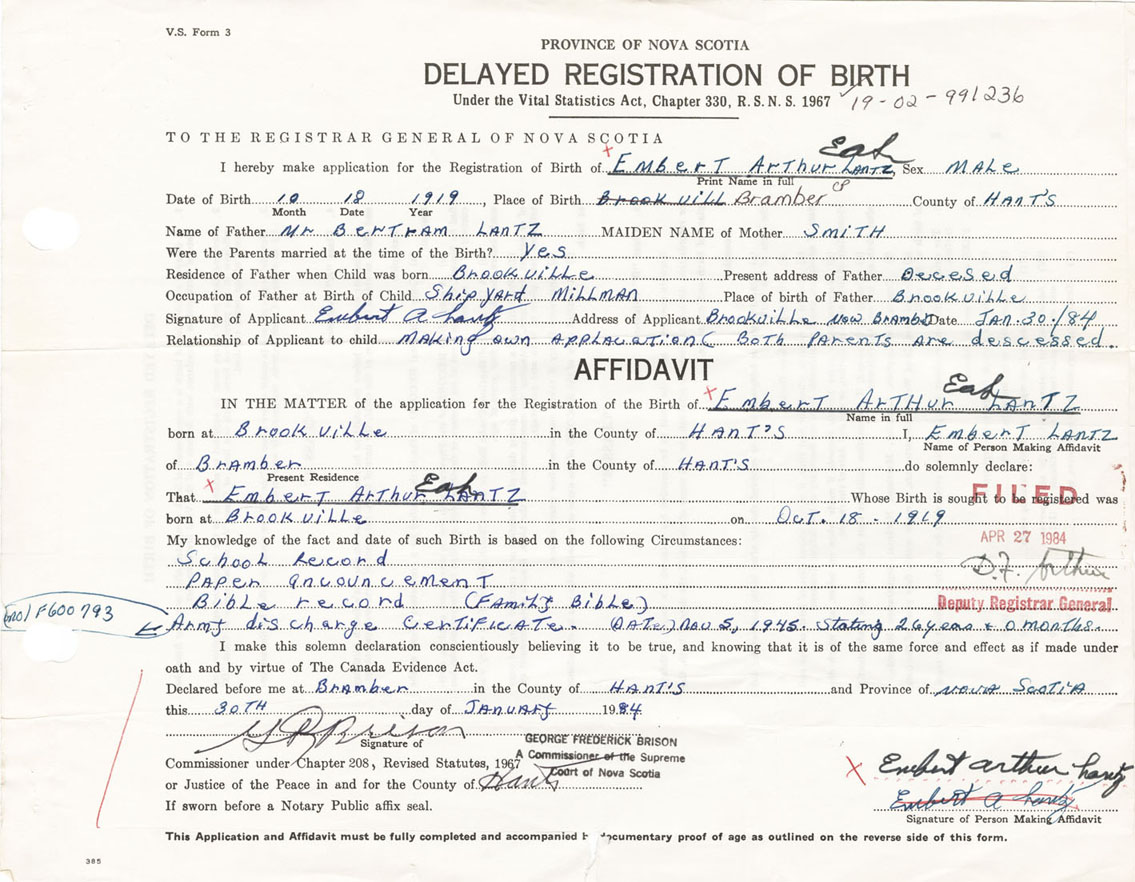 V.S. Form 3
PROVINCE OF NOVA SCOTIA
DELAYED REGISTRATION OF BIRTH
Under the Vital Statistics Act, Chapter 330, R.S.N.S. 1967 19-02-991236
TO THE REGISTRAR GENERAL OF NOVA SCOTIA
Eah
I hereby make application for the Registration of Birth of x EmberT ArThur LANTZ Sex MALe
Print Name in full
Date of Birth 10 18 1919, Place of Birth Brook vill Bramber CP County of HANT'S
Month Date Year
Name of Father Mr BerTrAm LANTZ MAIDEN NAME of Mother SMITH
Were the Parents married at the time of the Birth? Yes
Residence of Father when Child was born Brookville Present address of Father Decesed
Occupation of Father at Birth of Child Ship yard MiLLMAN Place of birth of Father Brookville
Signature of Applicant Embert A Lantz Address of Applicant Brookville Now Bramb Date JAN. 30/84
Relationship of Applicant to child MAKing own APPLACATION( BOTH PArenTs Are descessed.
AFFIDAVIT
Eah
IN THE MATTER of the application for the Registration of the Birth of x EmberT ArTHur LANTZ
Name in full
born at Brook ville in the County of HANT'S I, EMBERT LANTZ
Name of Person Making Affidavit
of BrAmber in the County of HANT'S do solemnly declare:
Present Residence
Eah
That x EmberT ArThur LANTZ Whose Birth is sought to be registered was
FILED
born at Brookville on OcT. 18 - 1919
APR 27 1984
My knowledge of the fact and date of such Birth is based on the following Circumstances:
School Record
D.F. Arthur
PAPer announcemenT
Deputy Registrar General
Bible record (Family Bible)
F600793
Army discharge CerTiFicATe. (DATe) Nov 5, 1945. Stating 26 years + 0 months.
I make this solemn declaration conscientiously believing it to be true, and knowing that it is of the same force and effect as if made under
oath and by virtue of The Canada Evidence Act.
Declared before me at Bramber in the County of HANT'S and Province of NOVA SCOTIA
this 30TH day of JANUARY 1984
Signature of
GEORGE FREDERICK BRISON
A Commissioner of the Supreme
Court of Nova Scotia
Commissioner under Chapter 208, Revised Statutes, 1967
or Justice of the Peace in and for the County of Hants
If sworn before a Notary Public affix seal.
x Embert Arthur Lantz
Embert A Lantz
Signature of Person Making Affidavit
This Application and Affidavit must be fully completed and accompanied documentary proof of age as outlined on the reverse side of this form.
385